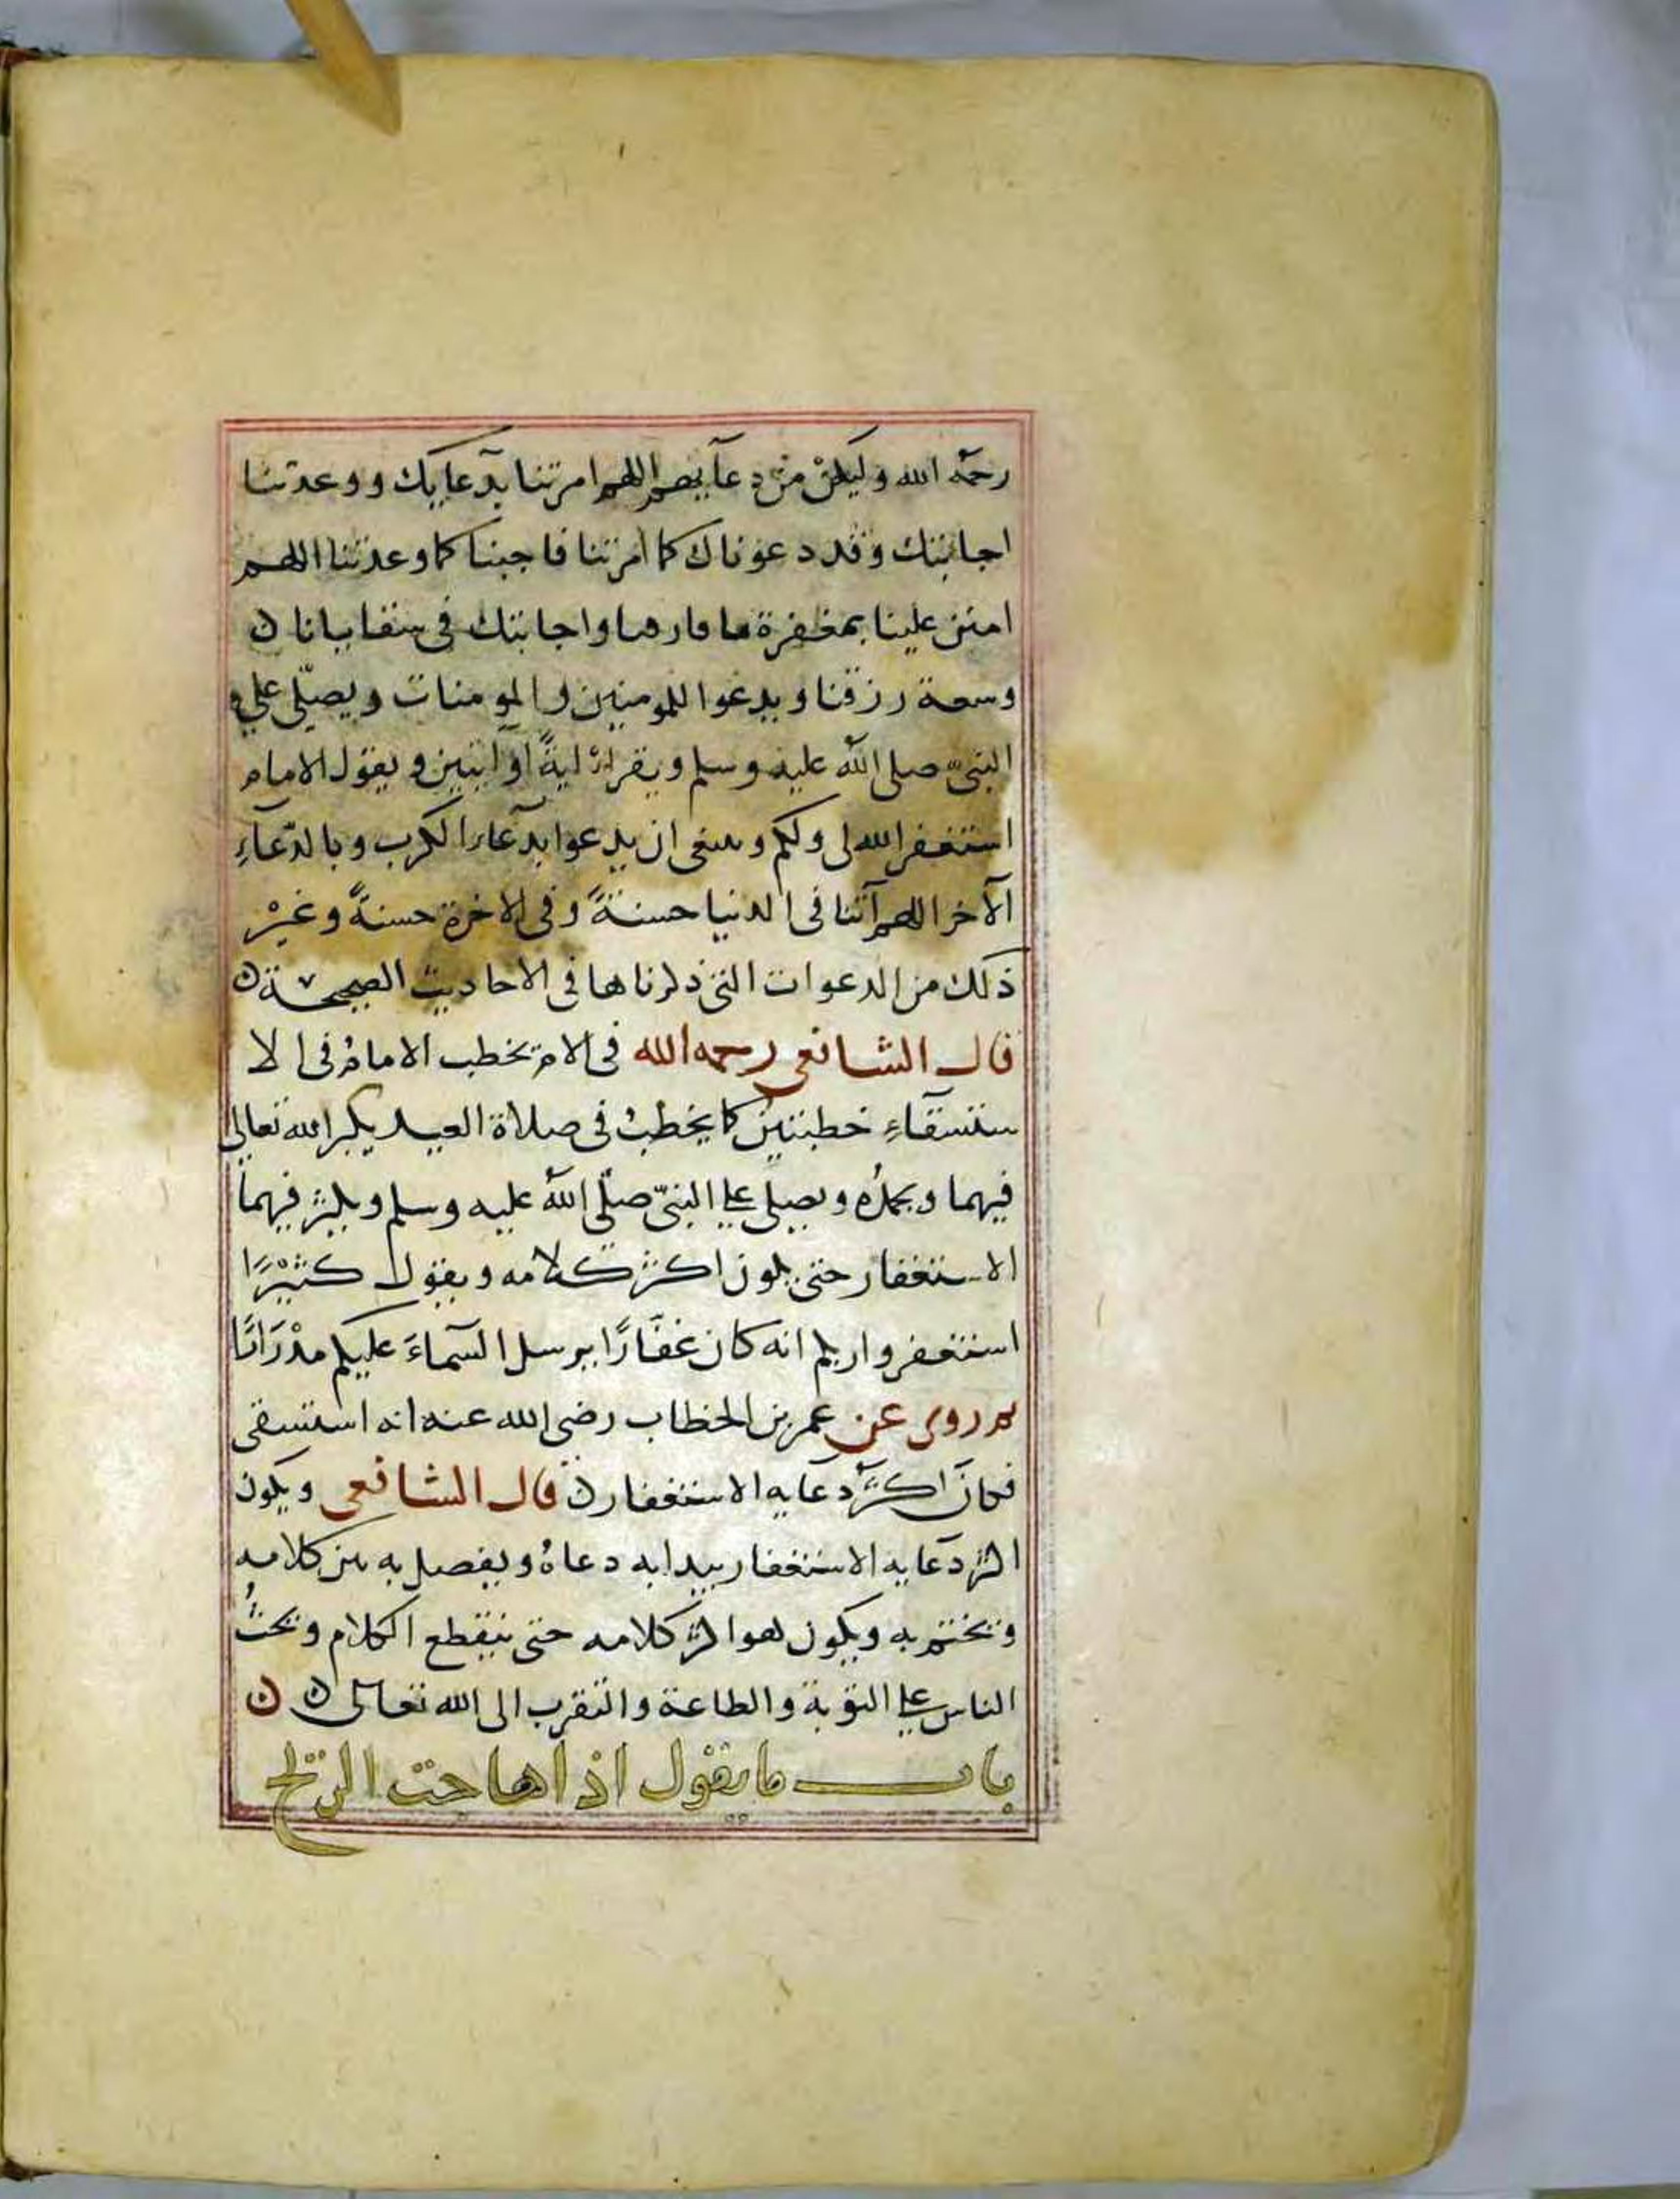 رحمه الله وليكن من دعآيهم اللهم امرتنا بدعايك ووعدتنا
اجابتك وقد دعوناك كما امرتنا فاجبنا كما وعدتنا اللهم
امنن علينا بمغفرة ما قارفنا واجابتك في سقيانا ن
وسعة رزقنا ويدعوا للمومنين والمومنات ويصلّي علي
النبيّ صلى الله عليه وسلم ويقرا ايةً او ايتين ويقول الامام
استغفر الله لي ولكم وينبغي ان يدعوا بدعاء الكرب وبالدّعآءِ
الآخر اللهم آتنا في الدنيا حسنةً وفي الاخرة حسنةً وغيْر
ذلك من الدعوات التي ذكرناها في الاحاديث الصحيحة ن
قال الشافعي رحمه الله في الام يخطب الامام في الا
ستسقآءِ خطبتين كما يخطب في صلاة العيد يكبر الله تعالى
فيهما ويحمدُه ويصلي علي النبيّ صلّى الله عليه وسلم ويكثر فيهما
الاستغفار حتى يكون اكثر كلامه ويقول كثيْرًا
استغفروا ربكم انه كان غفّارًا يرسل السمآءَ عليكم مدْرَارًا
ثم روى عن عمر بن الخطاب رضي الله عنه انه استسقى
فكانَ اكثر دعايه الاستغفار ن قال الشافعي ويكون
اكثر دعايه الاستغفار يبدا به دعاهُ ويفصل به بين كلامه
ويختم به ويكون هو اكثر كلامه حتى ينقطع الكلام ويحثُ
الناس علي التوبة والطاعة والتقرب الى الله تعالى ن ن
باب ما يقول اذا هاجت الريح